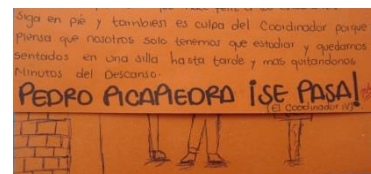 Siga en pie y tambien es culpa del Coordinador porque
piensa que nosotros solo tenemos que estudiar y quedarnos
sentados en una silla hasta tarde y mas quitandonos
Minutos del Descanso.
PEDRO PICAPIEDRA ¡SE PASA!
(El Coordinador IV)